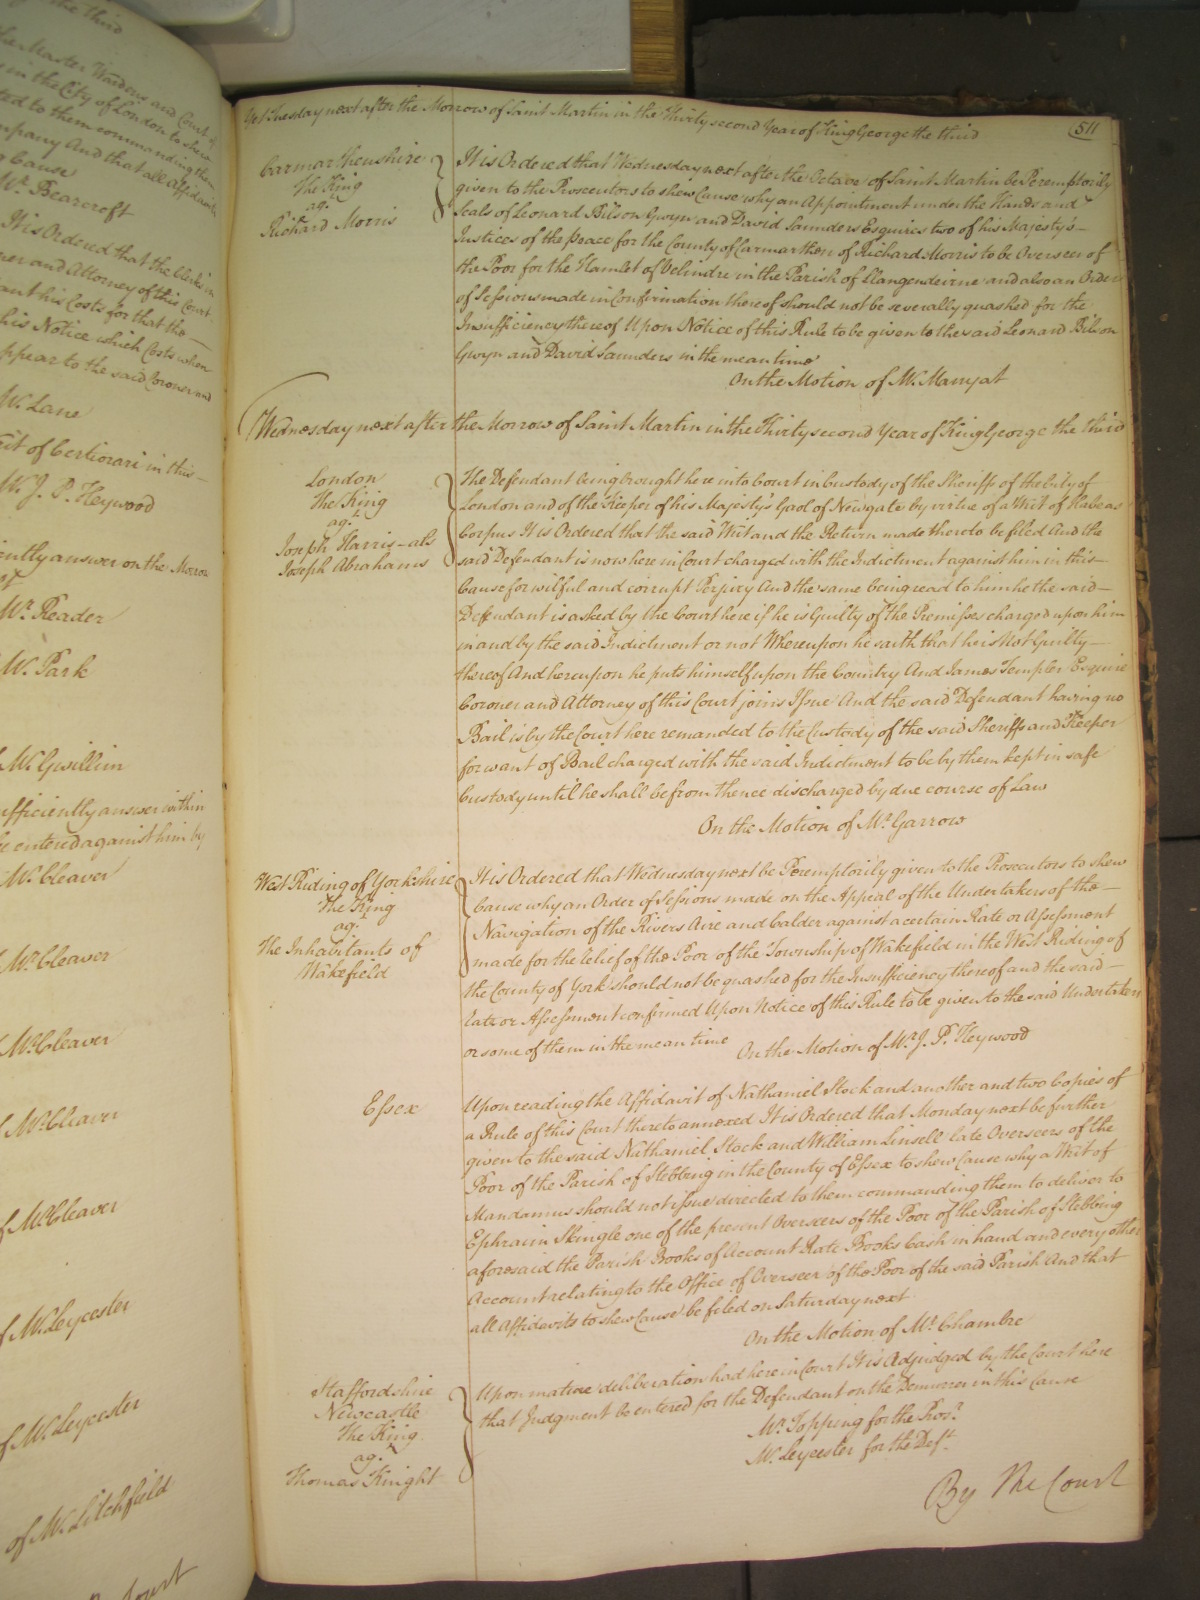 of the third
the Master Wardens and Court of
in the City of London to shew
ted to them commanding them
mpany And that all Affidavits
g Cause
Mr. Bearcroft
It is Ordered that the Clerks in
ner and Attorney of this Court
ant his Costs for that the
his Notice which Costs when
ppear to the said Coroner and
Mr. Lane
rit of Certiorari in this
Mr. J. P. Heywood
iently answer on the Morrow
Mr. Reader
Mr. Park
Mr. Gwillim
ufficiently answer within
be entered against him by
Mr. Cleaver
Mr. Cleaver
Mr. Cleaver
f Mr. Cleaver
f Mr. Cleaver
f Mr. Leycester
f Mr. Leycester
of Mr. Litchfield
Court
Yet Tuesday next after the Morrow of Saint Martin in the Thirty second Year of King George the third
511
Carmarthenshire
The King
agt.
Richard Morris
It is Ordered that Wednesday next after the Octave of Saint Martin be Peremptorily
given to the Prosecutors to shew Cause why an Appointment under the Hands and
Seals of Leonard Bilson Gwyn and David Saunders Esquires two of his Majesty's
Justices of the peace for the County of Carmarthen of Richard Morris to be Overseer of
the Poor for the Hamlet of Velindre in the Parish of Llangendeirne and also an Order
of Sessions made in Confirmation thereof should not be severally quashed for the
Insufficiency thereof Upon Notice of this Rule to be given to the said Leonard Bilson
Gwyn and David Saunders in the mean time
On the Motion of Mr. Marryat
Wednesday next after the Morrow of Saint Martin in the Thirty second Year of King George the third
London
The King
agt.
Joseph Harris als
Joseph Abrahams
The Defendant being brought here into Court in Custody of the Sheriffs of the City of
London and of the Keeper of his Majesty's Gaol of Newgate by virtue of a Writ of Habeas
Corpus It is Ordered that the said Writ and the Return made thereto be filed And the
said Defendant is now here in Court charged with the Indictment against him in this
Cause for wilful and corrupt Perjury And the same being read to him he the said
Defendant is asked by the Court here if he is Guilty of the Premises charged upon him
in and by the said Indictment or not Whereupon he saith that he is Not Guilty
thereof And hereupon he puts himself upon the Country And James Templer Esquire
Coroner and Attorney of this Court joins Issue And the said Defendant having no
Bail is by the Court here remanded to the Custody of the said Sheriffs and Keeper
for want of Bail charged with the said Indictment to be by them kept in safe
Custody until he shall be from thence discharged by due course of Law
On the Motion of Mr. Garrow
West Riding of Yorkshire
The King
agt.
The Inhabitants of
Wakefield
It is Ordered that Wednesday next be Peremptorily given to the Prosecutors to shew
Cause why an Order of Sessions made on the Appeal of the Undertakers of the
Navigation of the Rivers Aire and Calder against a certain Rate or Assessment
made for the relief of the Poor of the Township of Wakefield in the West Riding of
the County of York should not be quashed for the Insufficiency thereof and the said
rate or Assessment confirmed Upon Notice of this Rule to be given to the said Undertakers
or some of them in the mean time
On the Motion of Mr. J. P. Heywood
Essex
Upon reading the Affidavit of Nathaniel Stock and another and two Copies of
a Rule of this Court thereto annexed It is Ordered that Monday next be further
given to the said Nathaniel Stock and William Linsell late Overseers of the
Poor of the Parish of Stebbing in the County of Essex to shew Cause why a Writ of
Mandamus should not issue directed to them commanding them to deliver to
Ephraim Skingle one of the present Overseers of the Poor of the Parish of Stebbing
aforesaid the Parish Books of Account Rate Books Cash in hand and every other
Account relating to the Office of Overseer of the Poor of the said Parish And that
all Affidavits to shew Cause be filed on Saturday next
On the Motion of Mr. Chambre
Staffordshire
Newcastle
The King
agt.
Thomas Knight
Upon mature deliberation had here in Court It is Adjudged by the Court here
that Judgment be entered for the Defendant on the Demurrer in this Cause
Mr. Topping for the Prosr.
Mr. Leycester for the Deft.
By The Court